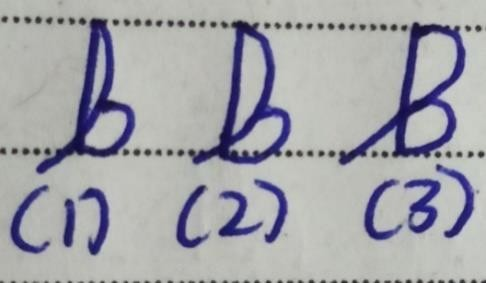 b B B
(1) (2) (3)